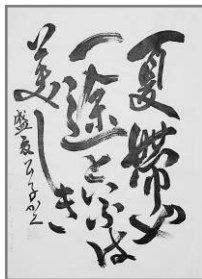 夏帯や
一途といふは
美しき
盛夏